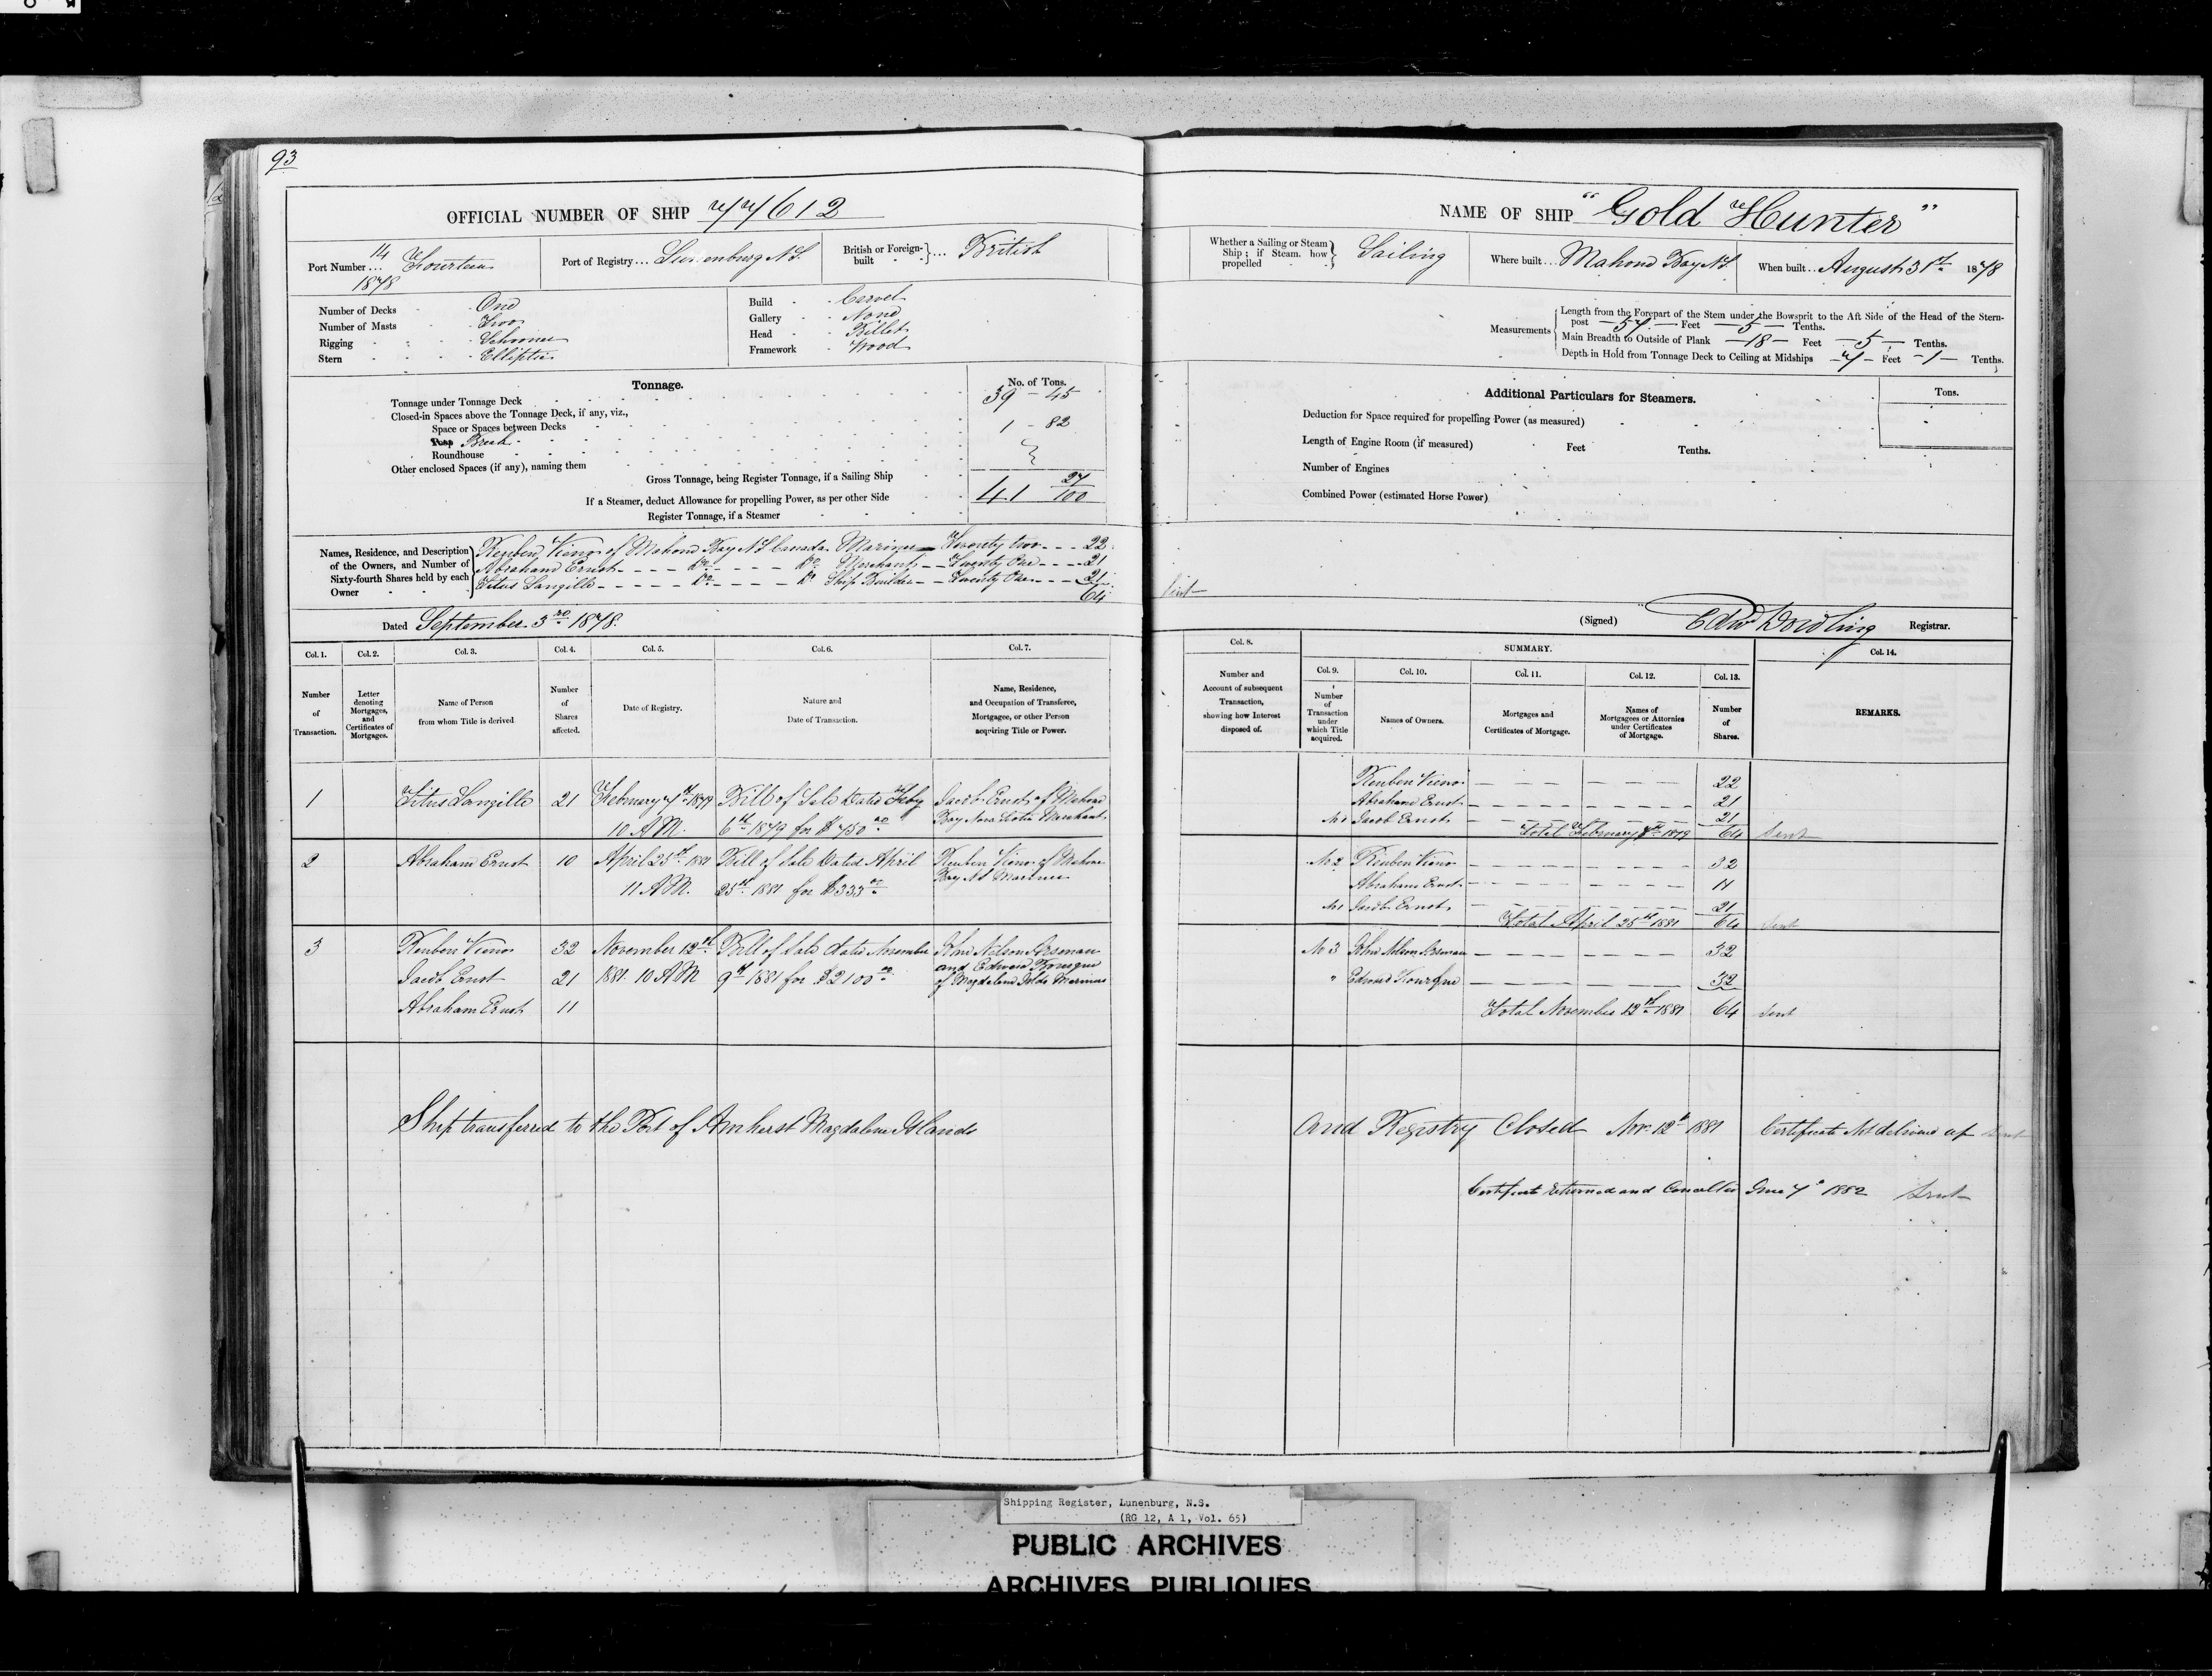 93
OFFICIAL NUMBER OF SHIP 77612
Port Number... 14 Fourteen 1878
Port of Registry... Lunenburg N.S.
British or Foreign-built ... British
Number of Decks One
Number of Masts Two
Rigging Schooner
Stern Elliptic
Build Carvel
Gallery None
Head Billet
Framework Wood
Tonnage. No. of Tons.
Tonnage under Tonnage Deck 39 - 45
Closed-in Spaces above the Tonnage Deck, if any, viz.,
Space or Spaces between Decks
Poop Break 1 - 82
Roundhouse
Other enclosed Spaces (if any), naming them
Gross Tonnage, being Register Tonnage, if a Sailing Ship 41 27/100
If a Steamer, deduct Allowance for propelling Power, as per other Side
Register Tonnage, if a Steamer
Names, Residence, and Description of the Owners, and Number of Sixty-fourth Shares held by each Owner
Reuben Vieno of Mahone Bay N.S Canada Mariner Twenty two 22
Abraham Ernst Do Do Merchant Twenty One 21
Titus Langille Do Do Ship Builder Twenty One 21
64
Dated September 3rd 1878.
Col. 1. Col. 2. Col. 3. Col. 4. Col. 5. Col. 6. Col. 7.
Number of Transaction.
Letter denoting Mortgages, and Certificates of Mortgages.
Name of Person from whom Title is derived
Number of Shares affected.
Date of Registry.
Nature and Date of Transaction.
Name, Residence, and Occupation of Transferee, Mortgagee, or other Person acquiring Title or Power.
1 Titus Langille 21 February 7th 1879 Bill of Sale Dated Feby Jacob Ernst of Mahone
10 A.M. 6th 1879 for $750 00 Bay Nova Scotia Merchant
2 Abraham Ernst 10 April 25th 1881 Bill of Sale Dated April Reuben Vieno of Mahone
11 A.M. 25th 1881 for $333 00 Bay N.S Mariner
3 Reuben Vieno 32 November 12th Bill of Sale dated November John Nelson Arseneau
Jacob Ernst 21 1881 10 A M 9th 1881 for $2100 00 and Edward
of Magdalene Islds Mariners
Abraham Ernst 11
Ship transferred to the Port of Amherst Magdalene Islands
NAME OF SHIP "Gold Hunter"
Whether a Sailing or Steam Ship; if Steam, how propelled Sailing
Where built... Mahone Bay N.S
When built... August 31st 1878
Measurements
Length from the Forepart of the Stem under the Bowsprit to the Aft Side of the Head of the Stern-
post 57 Feet 5 Tenths.
Main Breadth to Outside of Plank 18 Feet 5 Tenths.
Depth in Hold from Tonnage Deck to Ceiling at Midships 7 Feet 1 Tenths.
Additional Particulars for Steamers. Tons.
Deduction for Space required for propelling Power (as measured)
Length of Engine Room (if measured) Feet Tenths.
Number of Engines
Combined Power (estimated Horse Power)
Sent
(Signed) Edwd Dowling Registrar.
Col. 8. SUMMARY. Col. 14.
Col. 9. Col. 10. Col. 11. Col. 12. Col. 13.
Number and Account of subsequent Transaction, showing how Interest disposed of.
Number of Transaction under which Title acquired.
Names of Owners.
Mortgages and Certificates of Mortgage.
Names of Mortgagees or Attornies under Certificates of Mortgage.
Number of Shares.
REMARKS.
Reuben Vieno 22
Abraham Ernst 21
No 1 Jacob Ernst 21
Total February 7th 1879 64 Sent
No 2 Reuben Vieno 32
Abraham Ernst 11
No 1 Jacob Ernst 21
Total April 25th 1881 64 Sent
No 3 John Nelson Arseneau 32
" Edward 32
Total November 12th 1881 64 Sent
and Registry Closed Nov. 12th 1881 Certificate Not delivered up Sent
Certificate returned and Cancelled June 7th 1882 Sent
Shipping Register, Lunenburg, N.S.
(RG 12, A 1, Vol. 65)
PUBLIC ARCHIVES
ARCHIVES PUBLIQUES